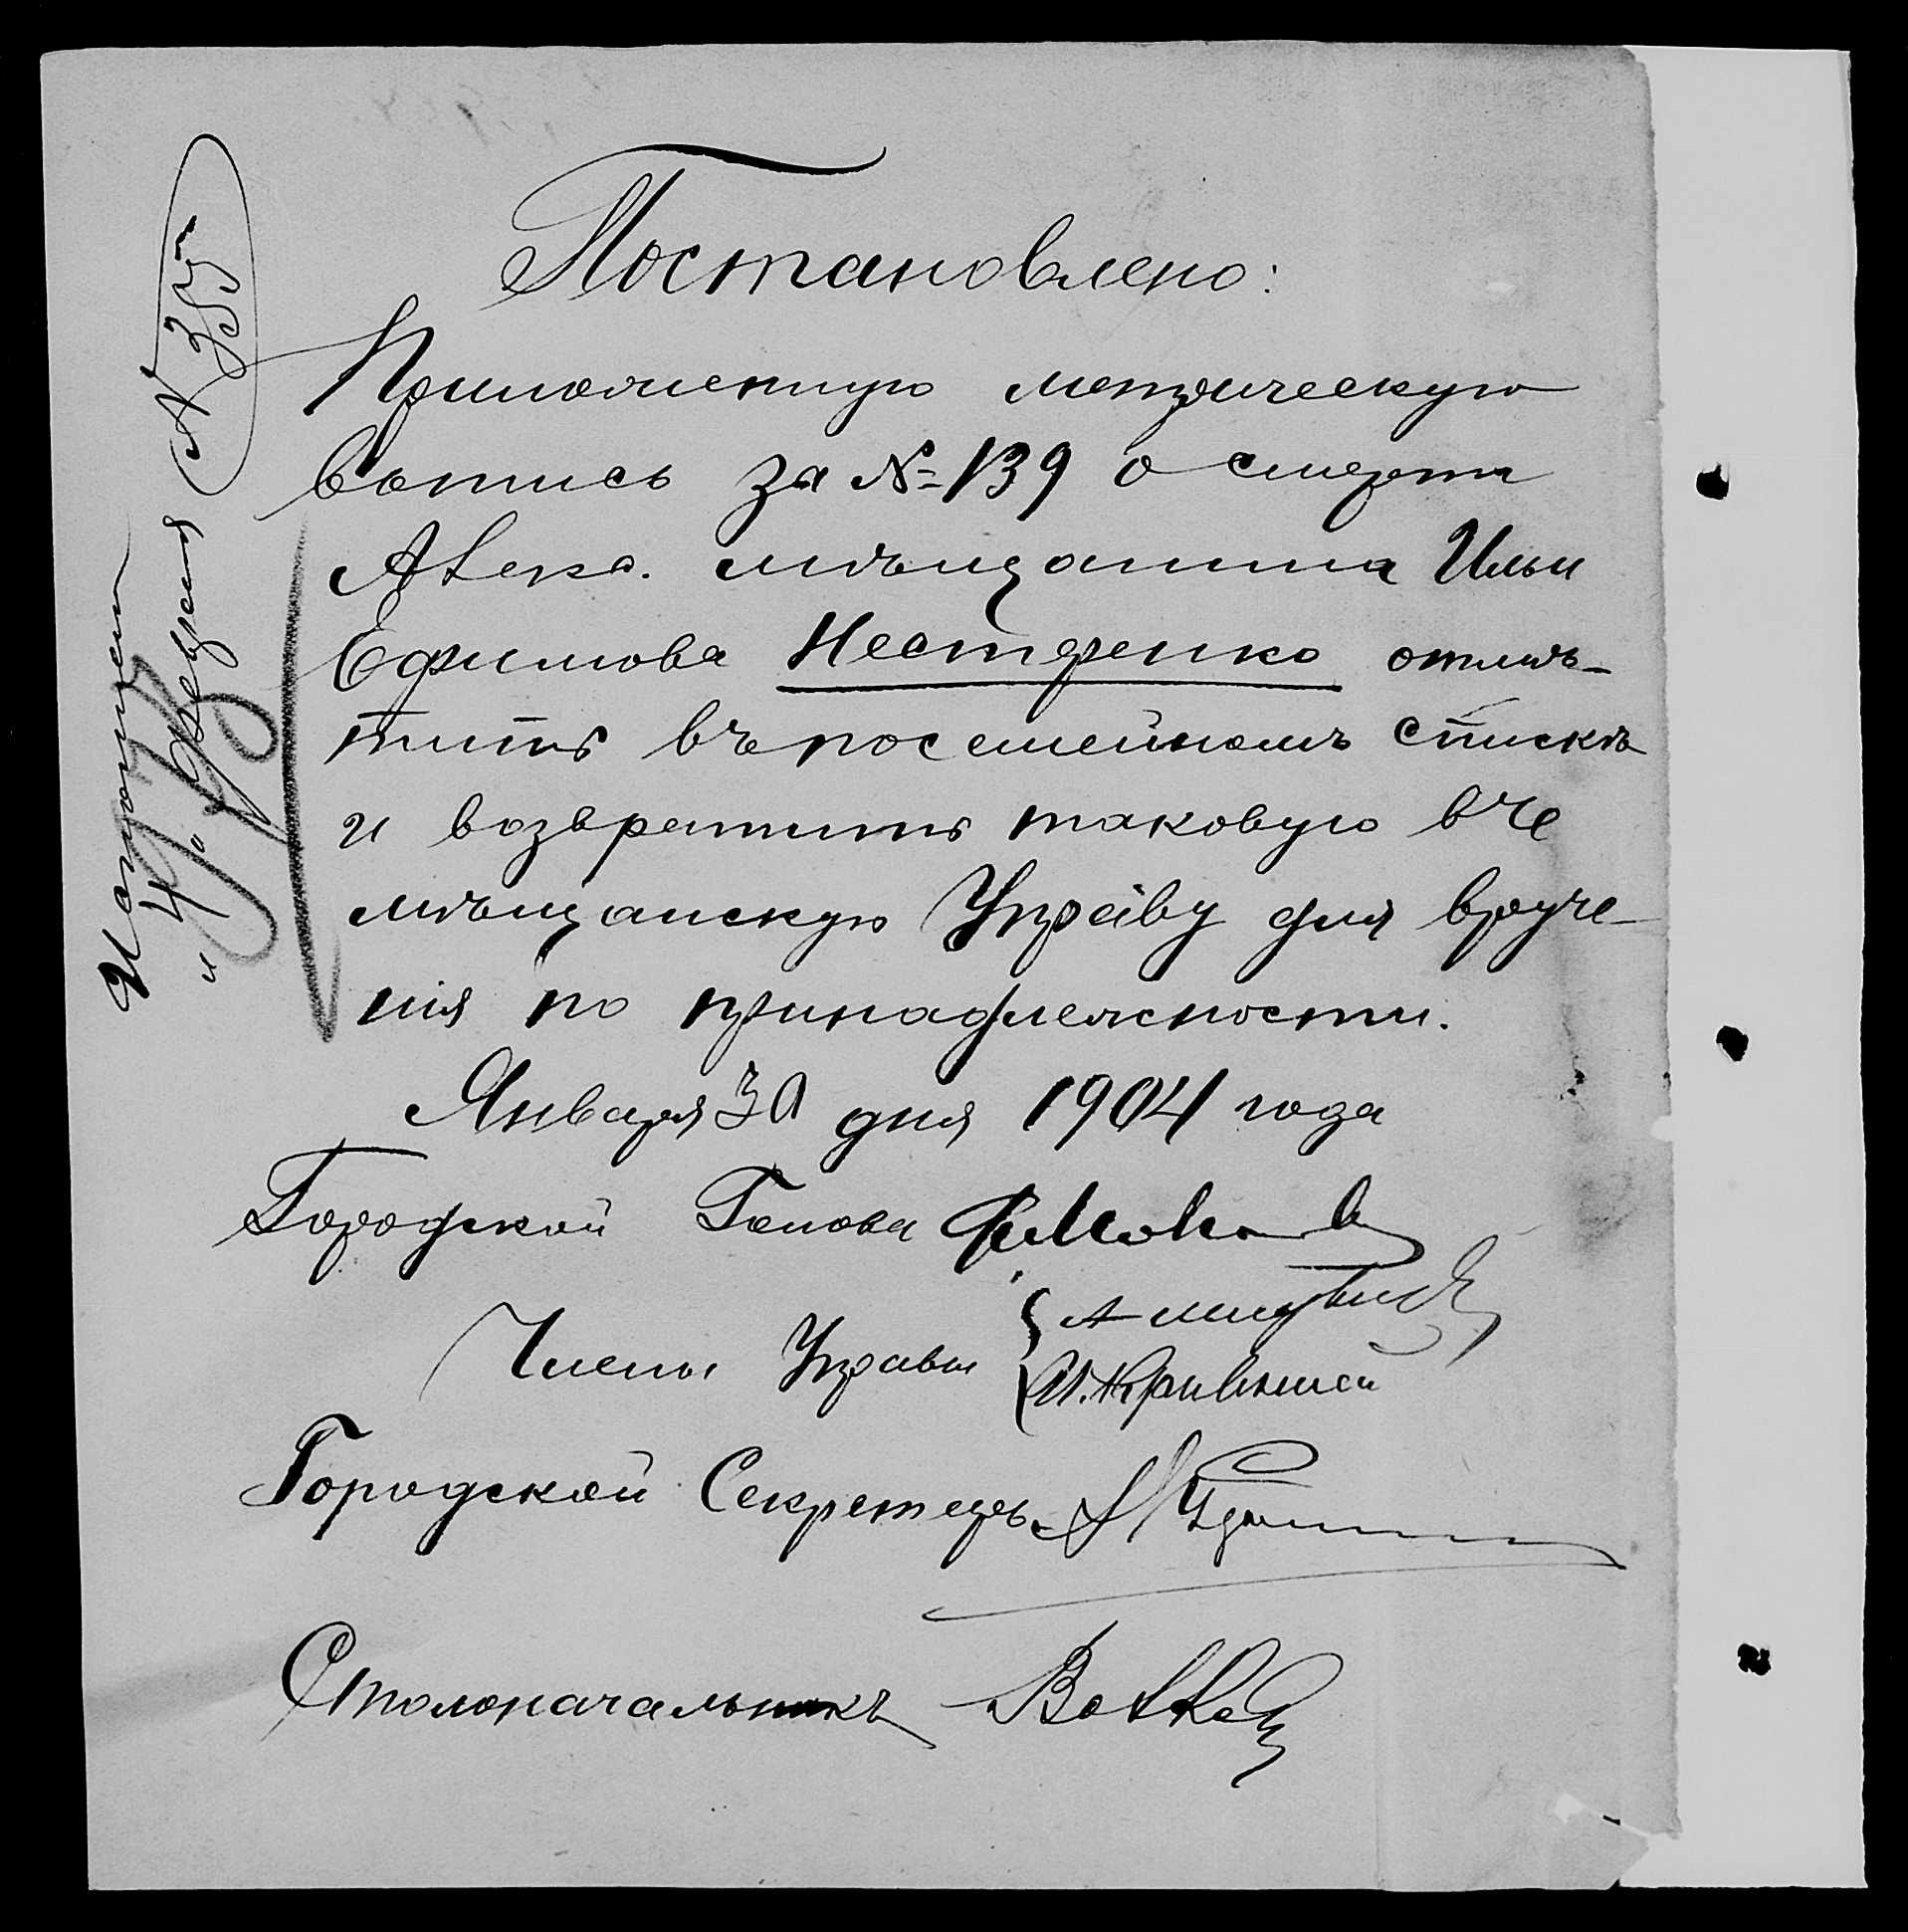 Постановлено:
Приложенную метрическую
выпись за №139 о смерти
Алекс. мѣщанина Ильи
Ефимова Нестеренко отмѣ-
тить въ посемейномъ спискѣ
и возвратить таковую въ
мѣщанскую Управу для вруче-
нія по принадлежности.
Января 30 дня 1904 года
Городской Голова
Члены Управы
Городской Секретарь
Столоначальникъ
Исполнен
4 Февраля
№ 355